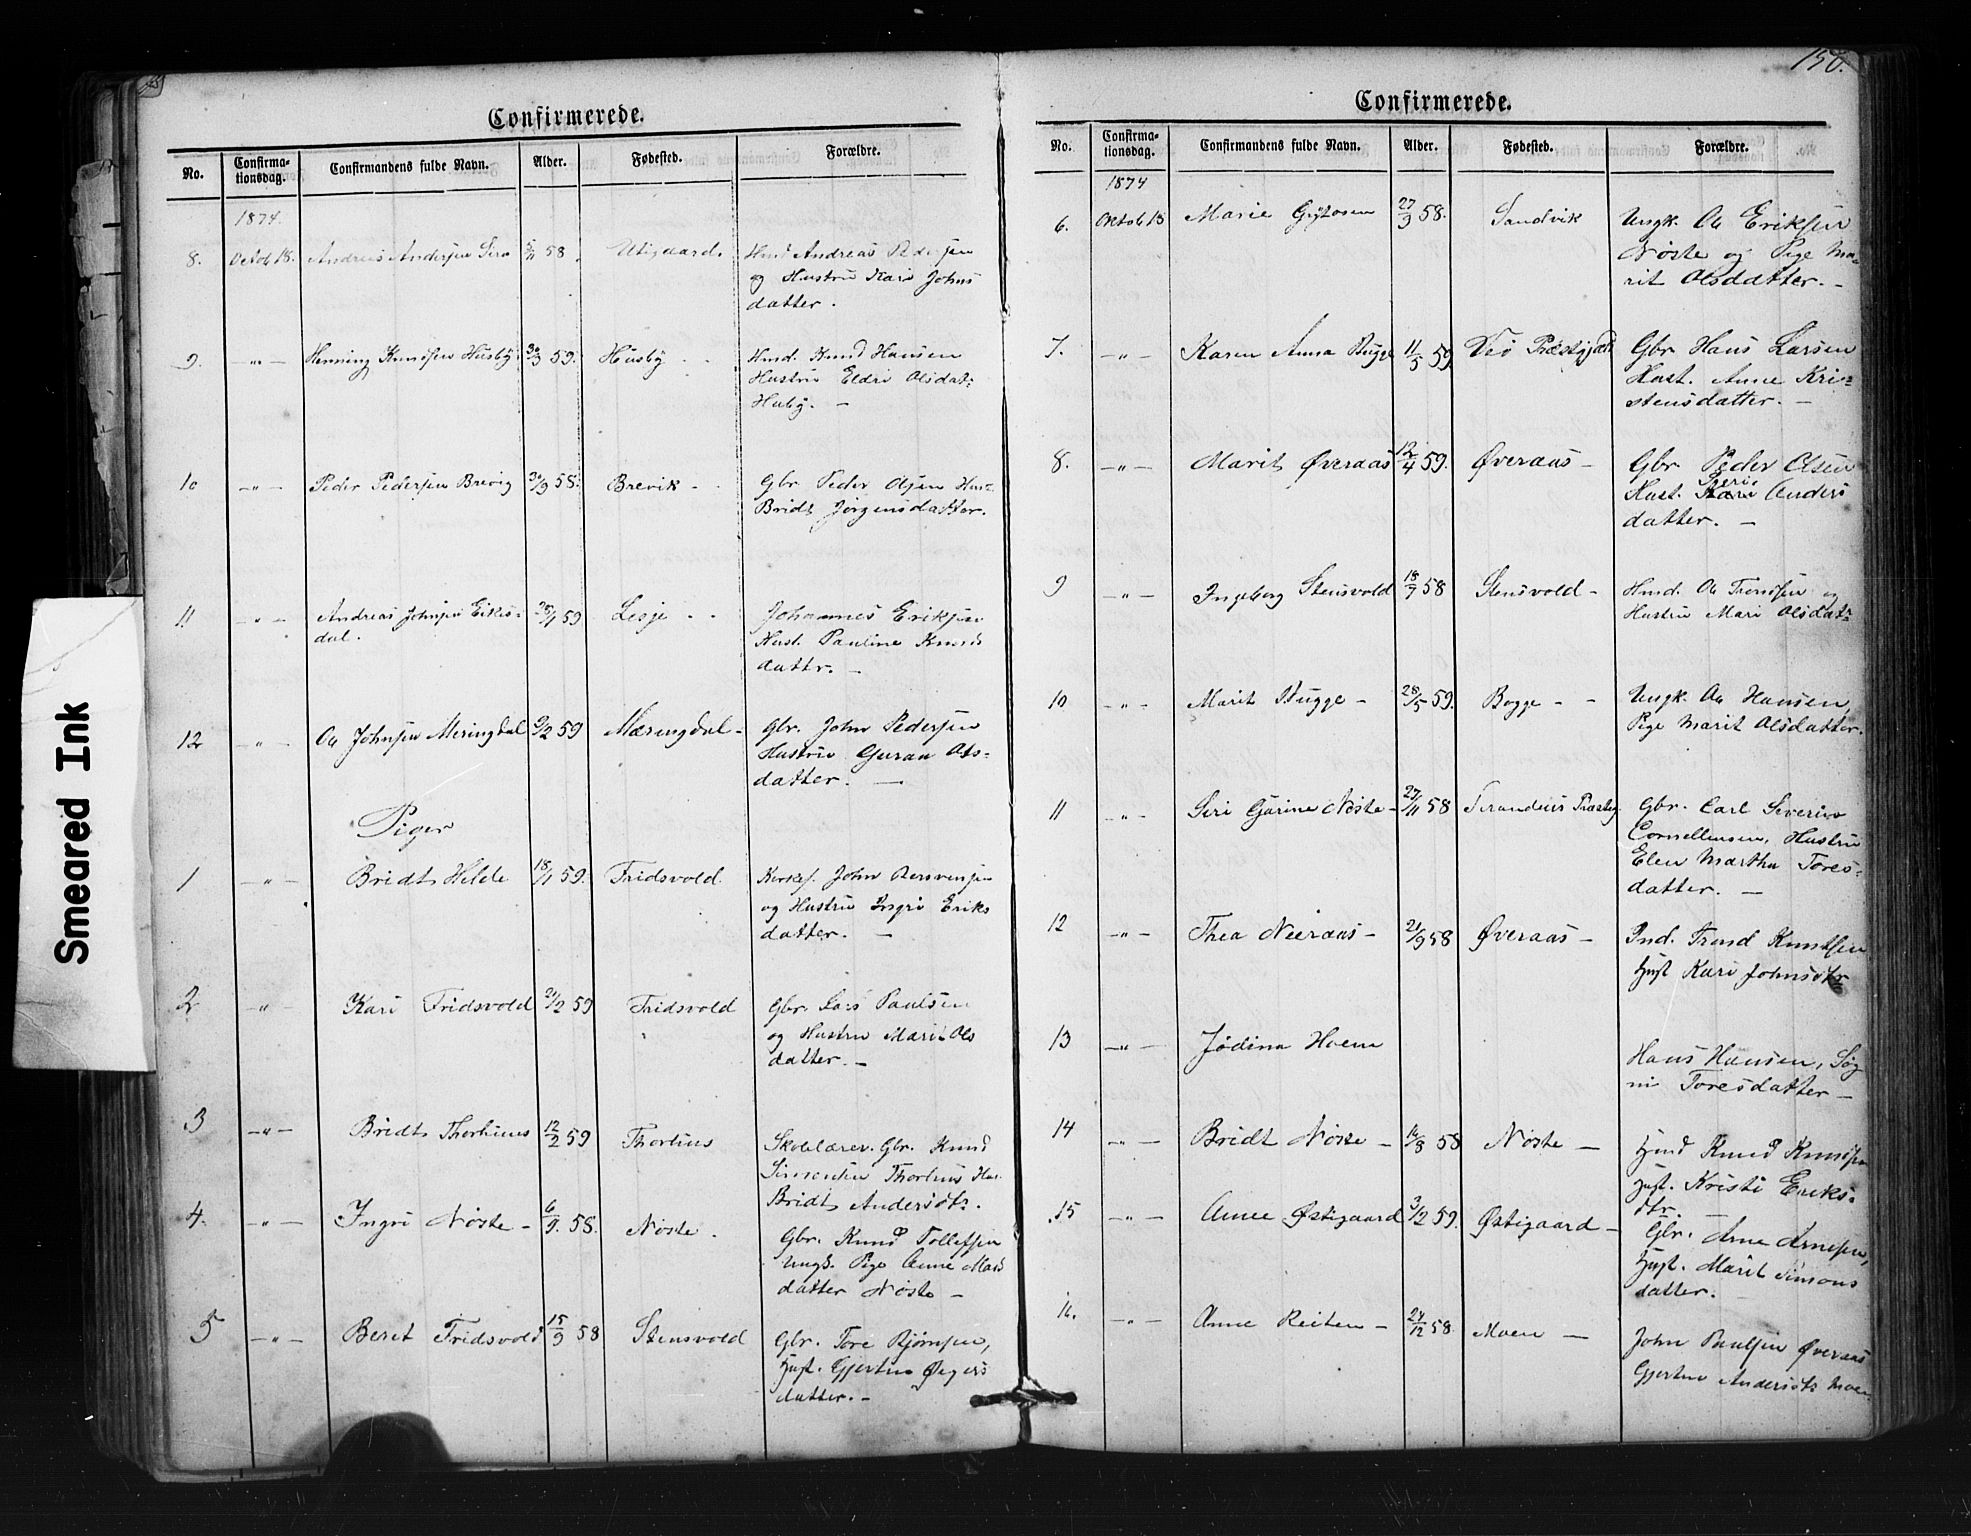 Confirmerede.
No.
Confirma-
tionsdag.
Confirmandens fulde Navn.
Alder.
Fødested.
Forældre.
1874.
8. Octob 18. Andreas Andersen 5/11 58 Utigaard. Hmd Andreas Pedersen
og Hustru Kari Johns
datter.
9. —"— Henning Knudsen Husby 59. Husby Hmd. Knud Hansen
Hustru Eldri Olsdat:
Husby. —
10 —"— Peder Pedersen Brevig 58. Brevik - Gbr Peder Olsen Hus:
Bridt Jørgensdatter.
11 —"— Andreas Johnsen Eikis:
dal. 59 Lesje - - Johannes Eriksen
Hust. Pauline Knuds
dattr. —
12 —"— Ole Johnsen Meringdal 9/2 59 Mæringdal - Gbr. John Pedersen
Hustru Guran Ols-
datter. —
Piger
1 —"— Bridt Helde 18/1 59. Fridsvold. John
og Hustru Ingri Eriks
datter. —
2 —"— Kari Fridsvold 21/2 59 Fridsvold Gbr. Lars Paulsen
og Hustru Mari Ols
datter. —
3 —"— Bridt Thorhuus 12/2 59 Thorhuus Skolelærer. Gbr. Knud
Thorhuus Hus.
Bridt Andersdtr.
4. —"— Ingri Nøste - 6/9 58. Nøste. Gbr. Knud Tollefsen
Pige Anne Mads
datter Nøste —
5 —"— Beret Fridsvold 15/9 58 Stensvold Gbr. Tore Bjørnsen,
Hust. Gjertru
datter. —
150.
Confirmerede.
No.
Confirma-
tionsdag.
Confirmandens fulde Navn.
Alder.
Fødested.
Forældre.
1874
6. Oktob 18 Marie 27/9 58. Sandvik Ungk. Ole Eriksen
Nøste og Pige Ma-
rit Olsdatter. —
7. —"— Karen Anna Bugge 11/5 59 Veø Præstgjæld Gbr Hans Larsen
Hust. Anne Kri-
stensdatter. —
8. —"— Marit Øveraas 12/4 59. Øveraas - Gbr. Peder Olsen
Hust. Anders
datter. —
9 —"— Ingeborg Stensvold 18/7 58 Stensvold - Hmd. Ole og
Hustru Mari Olsdat:
10 —"— Marit Bugge - 28/5 59. Bogge - - Ungk. Ole Hansen,
Pige Marit Olsdatter.
11 —"— Siri Gurine Nøste - 27/11 58 Gbr. Carl Severin
Cornelius​en, Hustru
Elen Martha Tores-
datter. —
12 —"— Thea 21/9 58 Øveraas - Ind. Trond Knutsen
Hust Kari Johnsdtr
13 —"— Jødina Hoem Hans Hansen, Søg
ni Toresdatter —
14 —"— Bridt Nøste - 58 Nøste - Hmd Knud Knudsen
Hust. Kristi Eriks.
dtr. —
15 —"— Anne Østigaard 3/2 59. Østigaard - Gbr. Arne Arnesen,
Hust. Marit Simons
datter.
16. —"— Anne Reiten - 24/12 58. Moen — John Paulsen Øveraas
Gjertru Andersdtr Moen
Smeared Ink